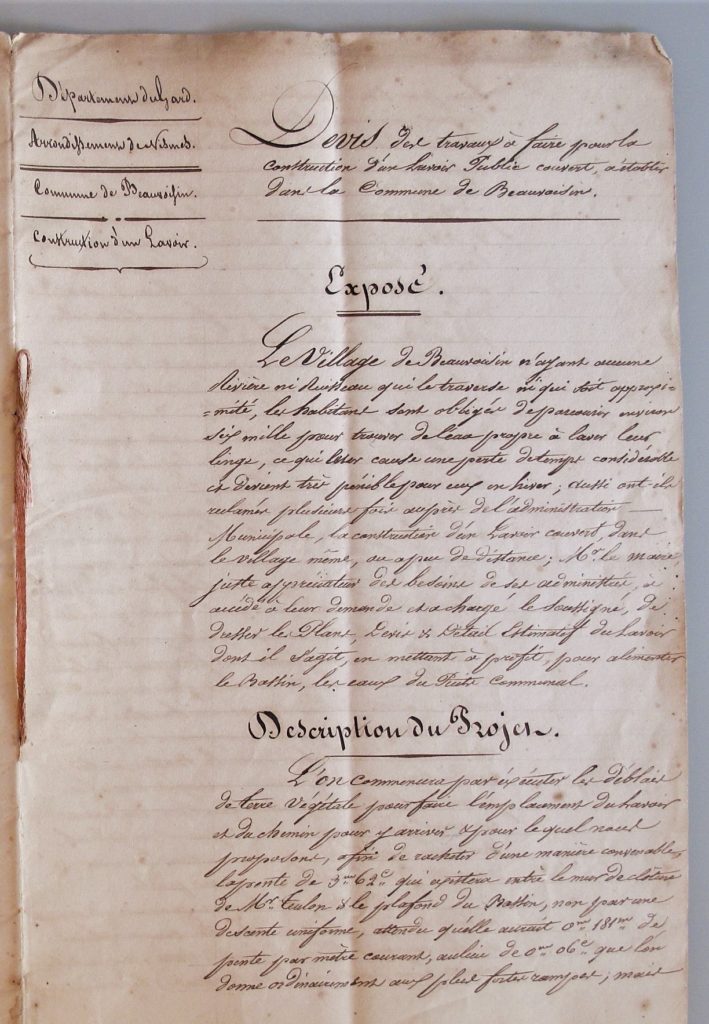 Département du Gard.
Arrondissement de Nismes.
Commune de Beauvoisin.
Construction d'un Lavoir.
Devis des travaux à faire pour la
construction d'un Lavoir Public couvert, à établir
dans la Commune de Beauvoisin.
Exposé.
Le Village de Beauvoisin n'ayant aucune
Rivière ni Ruisseau qui le traverse ni qui soit a proxi-
-mité, les habitans sont obligés de parcourir environ
six mille pour trouver de l'eau propre à laver leur
linge, ce qui leur cause une perte de temps considérable
et devient très pénible pour eux en hiver; aussi ont ils
réclamés plusieurs fois auprès de l'administration
Municipale, la construction d'un Lavoir couvert, dans
le village même, ou a peu de distance; Mr. le maire,
juste appréciateur des besoins de ses administrés, a
accédé à leur demande et a chargé le soussigné, de
dresser les Plans, Devis & Détail Estimatif du Lavoir
dont il s'agit, en mettant à profit, pour alimenter
le Bassin, les eaux du Puits Communal.
Description du Projet.
L'on commencera par exécuter les déblais
de terre végétale pour faire l'emplacement du Lavoir
et du chemin pour y arriver & pour le quel nous
proposons, afin de racheter d'une manière convenable,
la pente de 3m 62c qui existera entre le mur de clôture
de Mr. Teulon & le plafond du Bassin, non par une
descente uniforme, attendu qu'elle aurait 0m 181m de
pente par mètre courant, au lieu de 0m 06c que l'on
donne ordinairement aux plus fortes rampes; mais